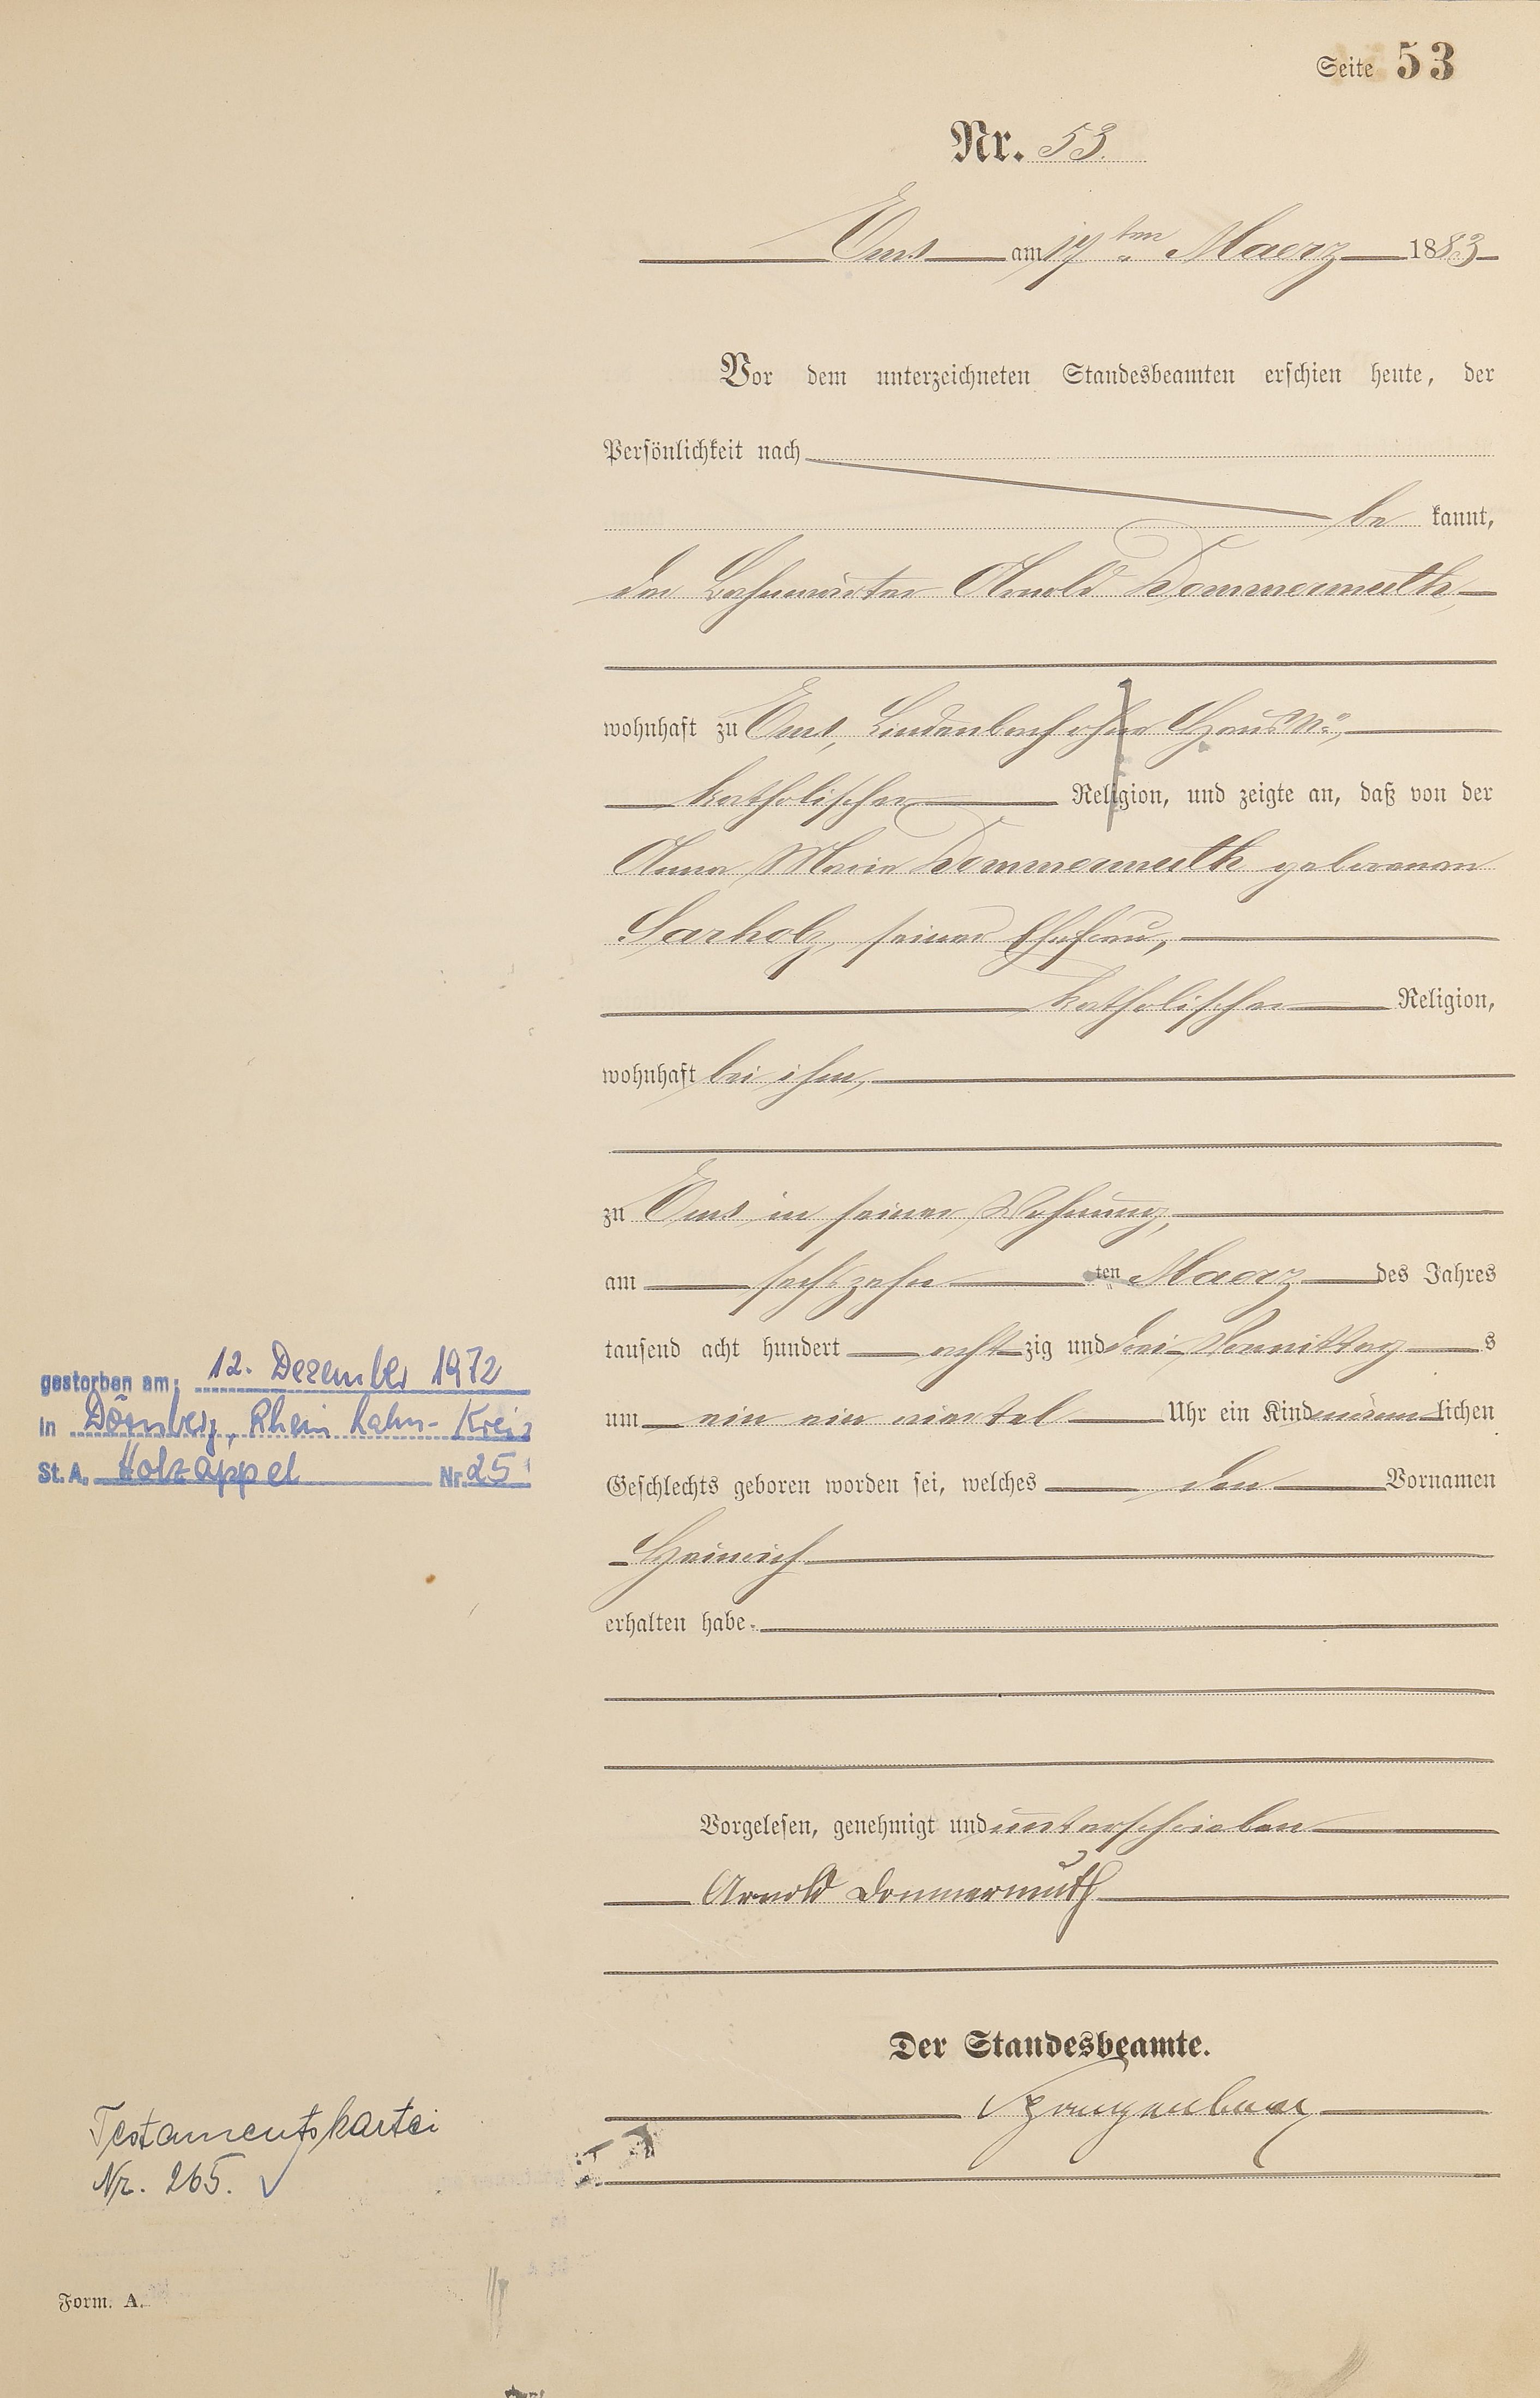 Seite 53
Nr. 53.
Ems am 17ten Maerz 1883
Vor dem unterzeichneten Standesbeamten erschien heute, der
Persönlichkeit nach
be kannt,
der Bahnwärter Arnold Dommermuth
wohnhaft zu Ems, Lindenbach ohne Haus No,
katholischer Religion, und zeigte an, daß von der
Anna Maria Dommermuth geborenen
Sarholz, seiner Ehefrau,
katholischer Religion,
wohnhaft bei ihm,
zu Ems in seiner Wohnung,
am sechszehn ten Maerz des Jahres
tausend acht hundert acht zig und drei Vormittag s
um ein ein viertel Uhr ein Kind männ lichen
Geschlechts geboren worden sei, welches den Vornamen
Heinrich
erhalten habe.
gestorben am: 12. Dezember 1972
in Dörnberg, Rhein Lahn-Kreis
St. A. Holzappel Nr. 25
Vorgelesen, genehmigt und unterschrieben
Arnold Dommermuth
Der Standesbeamte.
Testamentskartei
Nr. 265. ✓
Form. A.